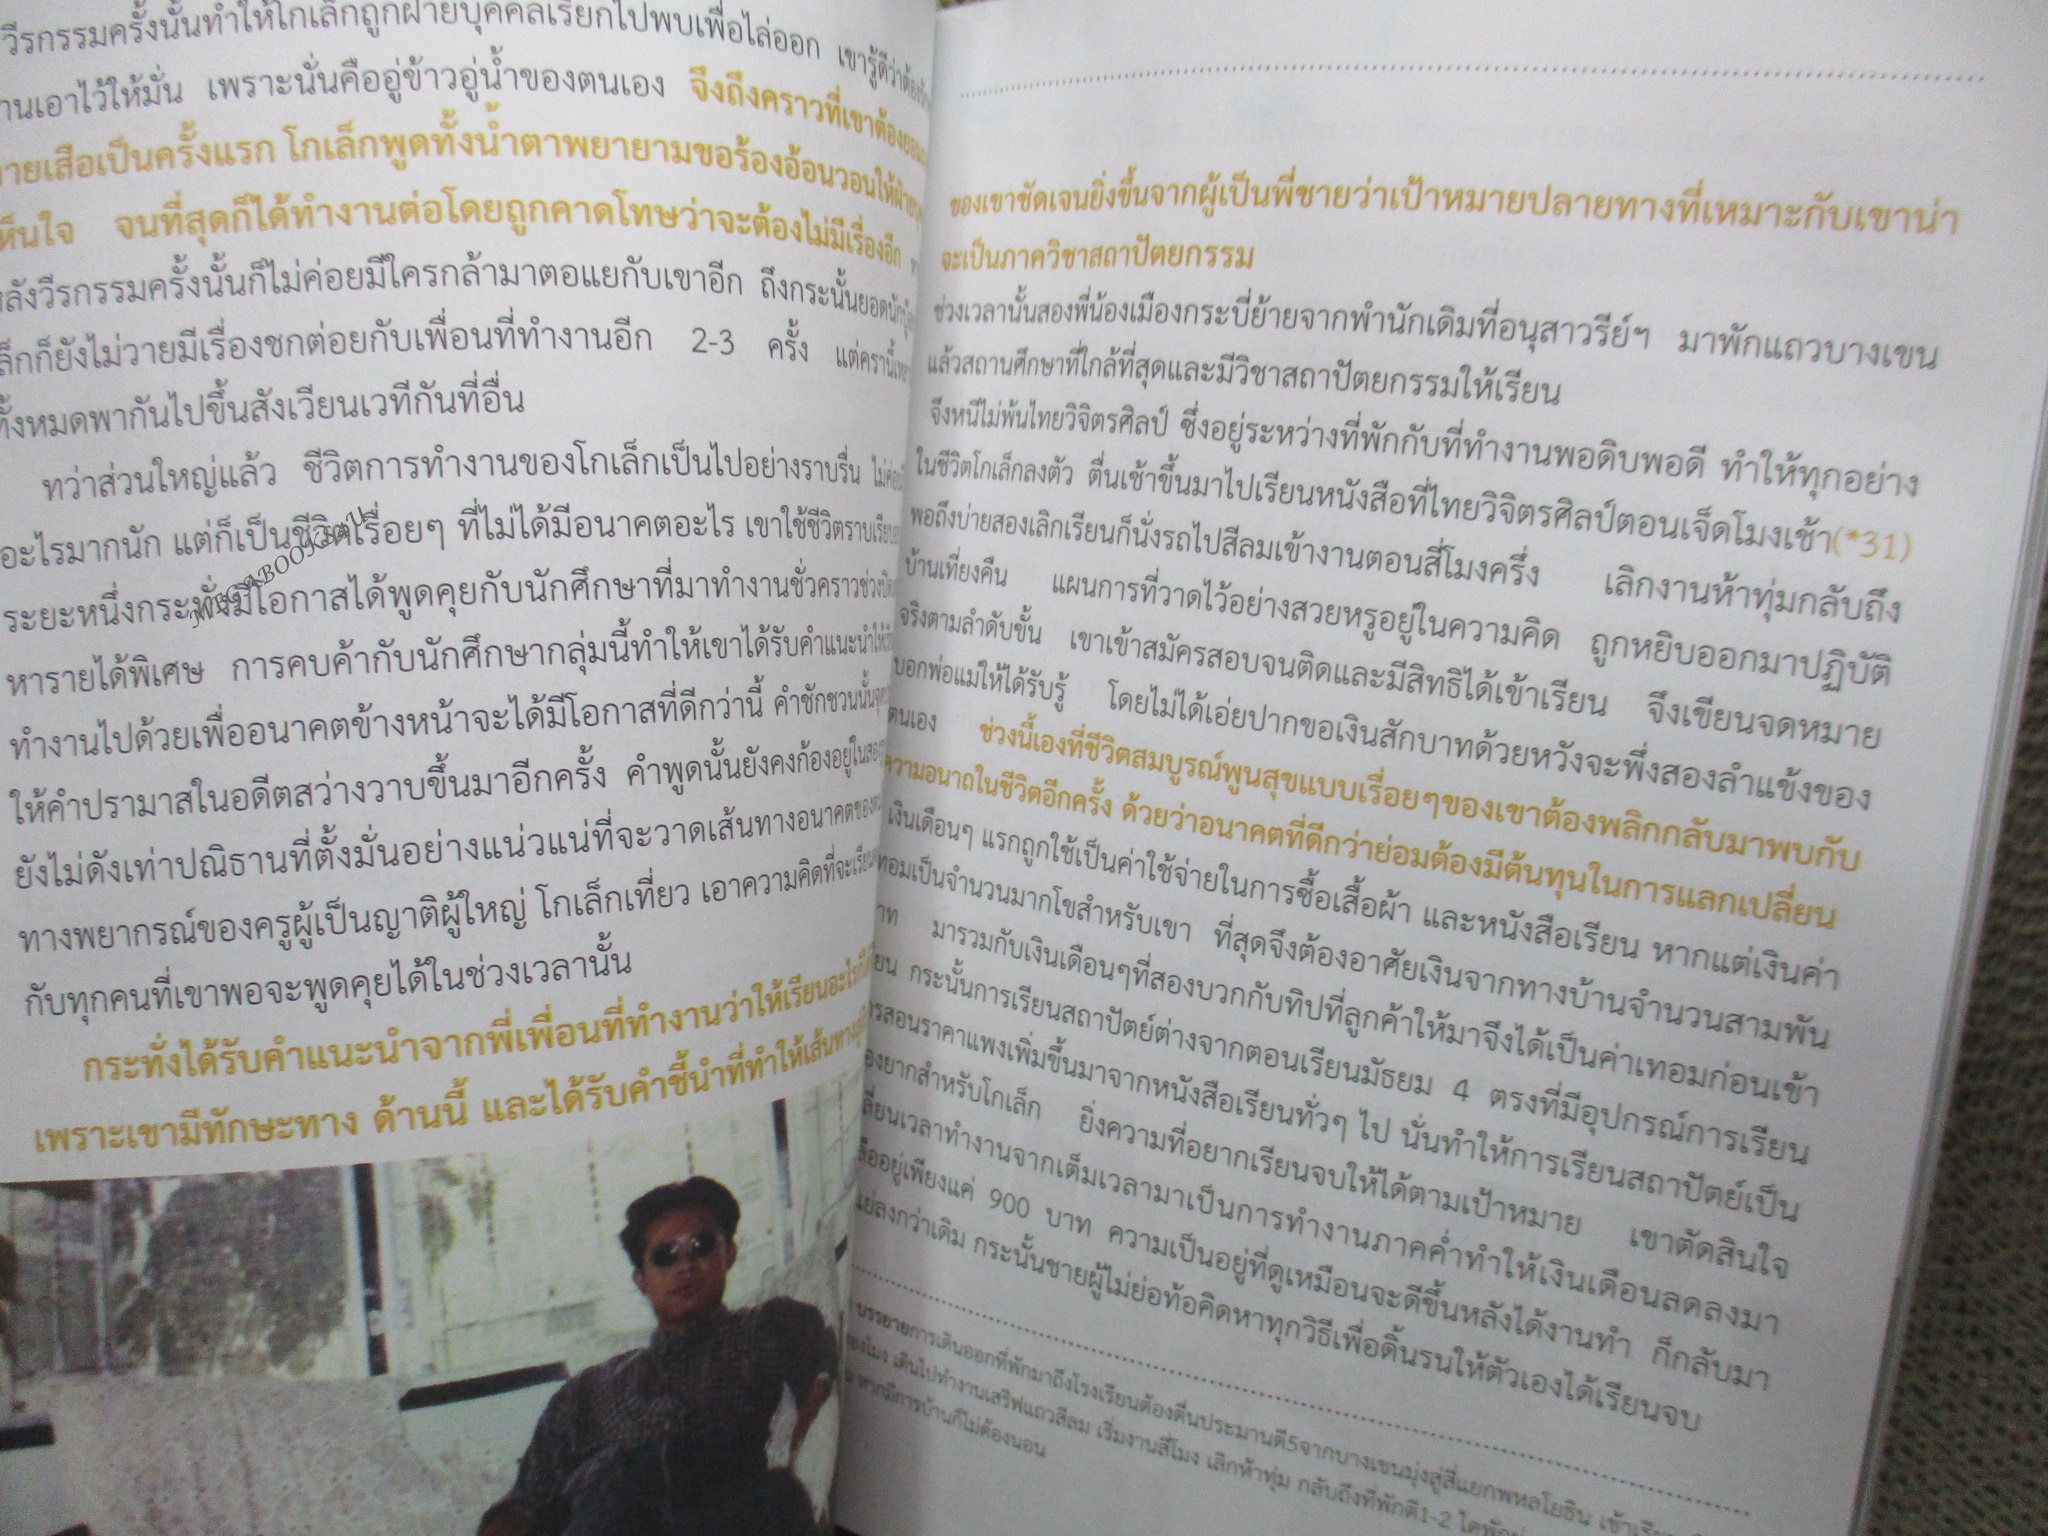 วีรกรรมครั้งนั้นทำให้โกเล็กถูกฝ่ายบุคคลเรียกไปพบเพื่อไล่ออก เขารู้ดีว่าต้อง
านเอาไว้ให้มั่น เพราะนั่นคืออู่ข้าวอู่น้ำของตนเอง จึงถึงคราวที่เขาต้องยอม
ายเสือเป็นครั้งแรก โกเล็กพูดทั้งน้ำตาพยายามขอร้องอ้อนวอนให้ฝ่าย
ห็นใจ จนที่สุดก็ได้ทำงานต่อโดยถูกคาดโทษว่าจะต้องไม่มีเรื่องอีก
ลังวีรกรรมครั้งนั้นก็ไม่ค่อยมีใครกล้ามาตอแยกับเขาอีก ถึงกระนั้นยอดนัก
ล็กก็ยังไม่วายมีเรื่องชกต่อยกับเพื่อนที่ทำงานอีก 2-3 ครั้ง แต่ครานี้
ทั้งหมดพากันไปขึ้นสังเวียนเวทีกันที่อื่น
ทว่าส่วนใหญ่แล้ว ชีวิตการทำงานของโกเล็กเป็นไปอย่างราบรื่น ไม่ค่อย
อะไรมากนัก แต่ก็เป็นชีวิตเรื่อยๆ ที่ไม่ได้มีอนาคตอะไร เขาใช้ชีวิตราบเรียบ
ระยะหนึ่งกระทั่งมีโอกาสได้พูดคุยกับนักศึกษาที่มาทำงานชั่วคราวช่วงปิด
หารายได้พิเศษ การคบค้ากับนักศึกษากลุ่มนี้ทำให้เขาได้รับคำแนะนำให้
ทำงานไปด้วยเพื่ออนาคตข้างหน้าจะได้มีโอกาสที่ดีกว่านี้ คำชักชวนนั้นจุด
ให้คำปรามาสในอดีตสว่างวาบขึ้นมาอีกครั้ง คำพูดนั้นยังคงก้องอยู่ในสอง
ยังไม่ดังเท่าปณิธานที่ตั้งมั่นอย่างแน่วแน่ที่จะวาดเส้นทางอนาคตของ
ทางพยากรณ์ของครูผู้เป็นญาติผู้ใหญ่ โกเล็กเที่ยว เอาความคิดที่จะเรียน
กับทุกคนที่เขาพอจะพูดคุยได้ในช่วงเวลานั้น
กระทั่งได้รับคำแนะนำจากพี่เพื่อนที่ทำงานว่าให้เรียนอะไรก็ได้
เพราะเขามีทักษะทาง ด้านนี้ และได้รับคำชี้นำที่ทำให้เส้นทาง
ของเขาชัดเจนยิ่งขึ้นจากผู้เป็นพี่ชายว่าเป้าหมายปลายทางที่เหมาะกับเขาน่า
จะเป็นภาควิชาสถาปัตยกรรม
ช่วงเวลานั้นสองพี่น้องเมืองกระบี่ย้ายจากพำนักเดิมที่อนุสาวรีย์ฯ มาพักแถวบางเขน
แล้วสถานศึกษาที่ใกล้ที่สุดและมีวิชาสถาปัตยกรรมให้เรียน
จึงหนีไม่พ้นไทยวิจิตรศิลป์ ซึ่งอยู่ระหว่างที่พักกับที่ทำงานพอดิบพอดี ทำให้ทุกอย่าง
ในชีวิตโกเล็กลงตัว ตื่นเช้าขึ้นมาไปเรียนหนังสือที่ไทยวิจิตรศิลป์ตอนเจ็ดโมงเช้า(*31)
พอถึงบ่ายสองเลิกเรียนก็นั่งรถไปสีลมเข้างานตอนสี่โมงครึ่ง เลิกงานห้าทุ่มกลับถึง
บ้านเที่ยงคืน แผนการที่วาดไว้อย่างสวยหรูอยู่ในความคิด ถูกหยิบออกมาปฏิบัติ
จริงตามลำดับขั้น เขาเข้าสมัครสอบจนติดและมีสิทธิได้เข้าเรียน จึงเขียนจดหมาย
บอกพ่อแม่ให้ได้รับรู้ โดยไม่ได้เอ่ยปากขอเงินสักบาทด้วยหวังจะพึ่งสองลำแข้งของ
ตนเอง ช่วงนี้เองที่ชีวิตสมบูรณ์พูนสุขแบบเรื่อยๆของเขาต้องพลิกกลับมาพบกับ
ความอนาถในชีวิตอีกครั้ง ด้วยว่าอนาคตที่ดีกว่าย่อมต้องมีต้นทุนในการแลกเปลี่ยน
เงินเดือนๆ แรกถูกใช้เป็นค่าใช้จ่ายในการซื้อเสื้อผ้า และหนังสือเรียน หากแต่เงินค่า
ทอมเป็นจำนวนมากโขสำหรับเขา ที่สุดจึงต้องอาศัยเงินจากทางบ้านจำนวนสามพัน
าท มารวมกับเงินเดือนๆที่สองบวกกับทิปที่ลูกค้าให้มาจึงได้เป็นค่าเทอมก่อนเข้า
ยน กระนั้นการเรียนสถาปัตย์ต่างจากตอนเรียนมัธยม 4 ตรงที่มีอุปกรณ์การเรียน
รสอนราคาแพงเพิ่มขึ้นมาจากหนังสือเรียนทั่วๆ ไป นั่นทำให้การเรียนสถาปัตย์เป็น
องยากสำหรับโกเล็ก ยิ่งความที่อยากเรียนจบให้ได้ตามเป้าหมาย เขาตัดสินใจ
ลี่ยนเวลาทำงานจากเต็มเวลามาเป็นการทำงานภาคค่ำทำให้เงินเดือนลดลงมา
ลืออยู่เพียงแค่ 900 บาท ความเป็นอยู่ที่ดูเหมือนจะดีขึ้นหลังได้งานทำ ก็กลับมา
แย่ลงกว่าเดิม กระนั้นชายผู้ไม่ย่อท้อคิดหาทุกวิธีเพื่อดิ้นรนให้ตัวเองได้เรียนจบ
บรรยายการเดินออกที่พักมาถึงโรงเรียนต้องตื่นประมานตี5จากบางเขนมุ่งสู่สี่แยกพหลโยธิน
องโมง เดินไปทำงานเสริฟแถวสีลม เริ่มงานสี่โมง เลิกห้าทุ่ม กลับถึงที่พักตี1-2
หากมีการบ้านก็ไม่ต้องนอน